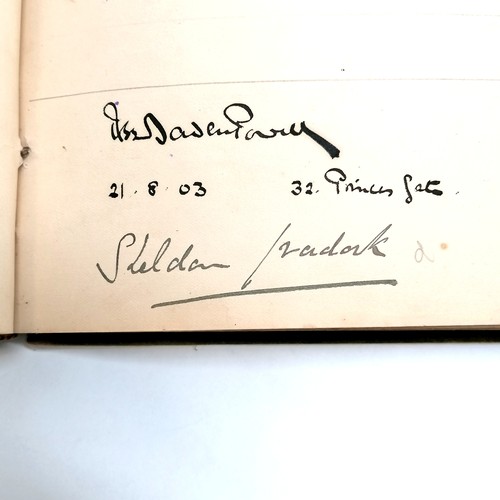 Baden Powell
21. 8. 03 32. Princes Gate.
Sheldon